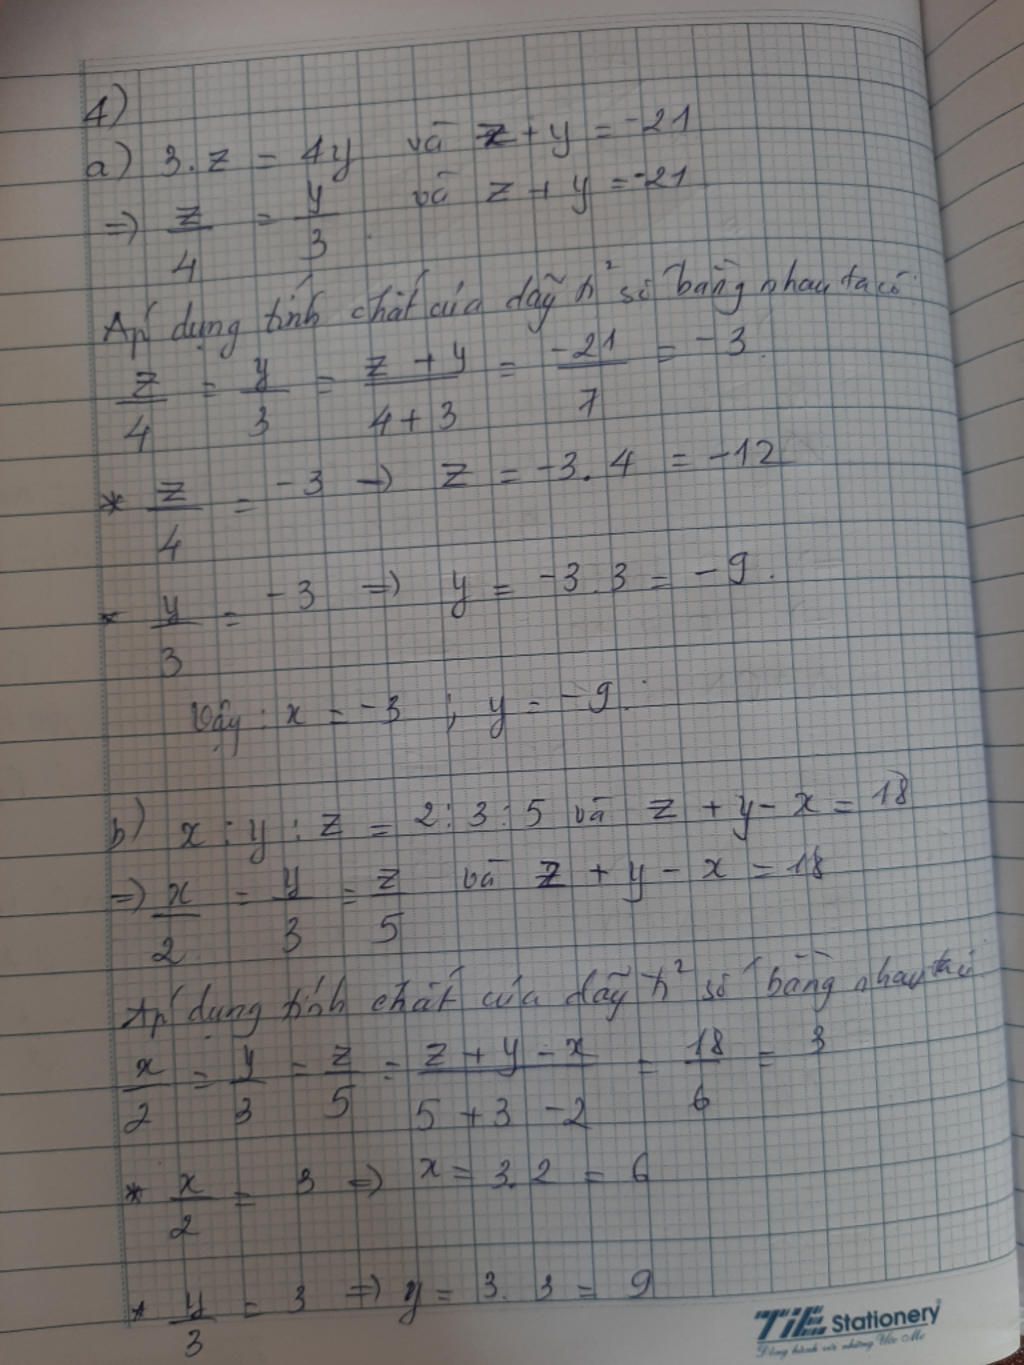 4)
a) 3.z = 4y và z + y = -21
=> z/4 = y/3 và z + y = -21
Áp dụng tính chất của dãy tỉ số bằng nhau ta có
z/4 = y/3 = z + y/4 + 3 = -21/7 = -3
* z/4 = -3 => z = -3.4 = -12
* y/3 = -3 => y = -3.3 = -9.
Vậy: x = -3 ; y = -9.
b) x : y : z = 2 : 3 : 5 và z + y - x = 18
=> x/2 = y/3 = z/5 và z + y - x = 18
Áp dụng tính chất của dãy tỉ số bằng nhau ta có
x/2 = y/3 = z/5 = z + y - x/5 + 3 - 2 = 18/6 = 3
* x/2 = 3 => x = 3.2 = 6
* y/3 = 3 => y = 3.3 = 9
TIE Stationery
Đồng hành với những Ước Mơ